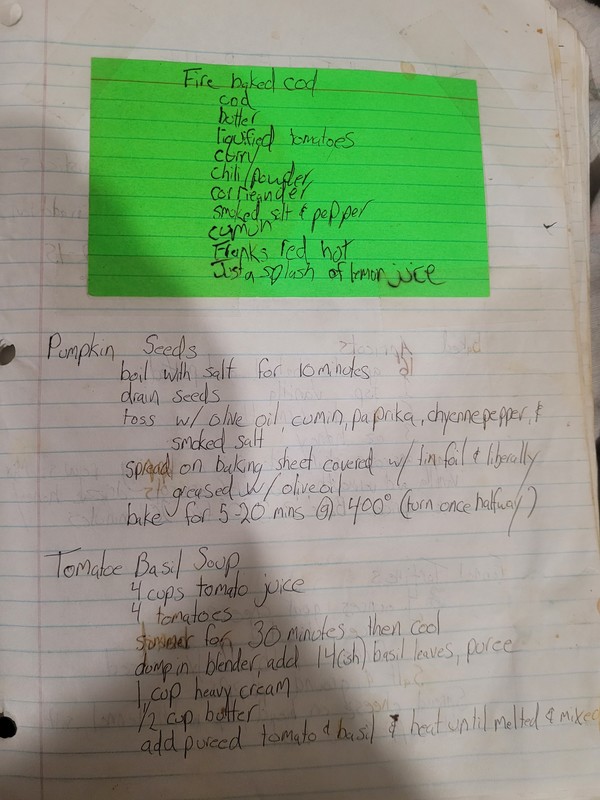 Fire baked cod
cod
butter
liquified tomatoes
curry
chili powder
corrieander
smoked salt & pepper
cumun
Franks red hot
Just a splash of lemon juice
Pumpkin Seeds
boil with salt for 10 minutes
drain seeds
toss w/ olive oil, cumin, paprika, chyenne pepper, &
smoked salt
spread on baking sheet covered w/ tin foil & liberally
greased w/ olive oil
bake for 5-20 mins @ 400° (turn once halfway)
Tomatoe Basil Soup
4 cups tomato juice
4 tomatoes
simmer for 30 minutes then cool
dump in blender, add 14(ish) basil leaves, puree
1 cup heavy cream
1/2 cup butter
add pureed tomato & basil & heat until melted & mixed